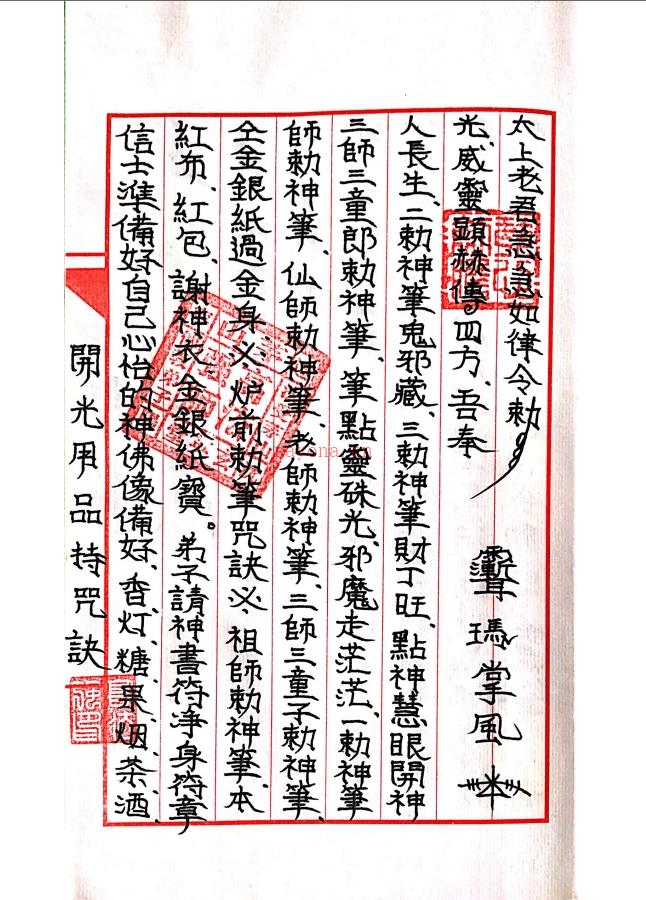 開光用品持咒訣
信士準備好自己心怡的神佛像備好、香灯、糖果、烟、茶、酒、
紅布、紅包、謝神衣、金銀紙寶。弟子請神書符淨身符章
仝金銀紙過金身、必、炉前勅筆咒訣必、祖師勅神筆、本
師勅神筆、仙師勅神筆、老師勅神筆、三師三童子勅神筆、
三師三童郎勅神筆、筆點靈硃光、邪魔走茫茫、一勅神筆
人長生、二勅神筆鬼邪藏、三勅神筆財丁旺、點神慧眼開神
光、威靈顯赫傳四方、吾奉
太上老君急急如律令勅
掌風